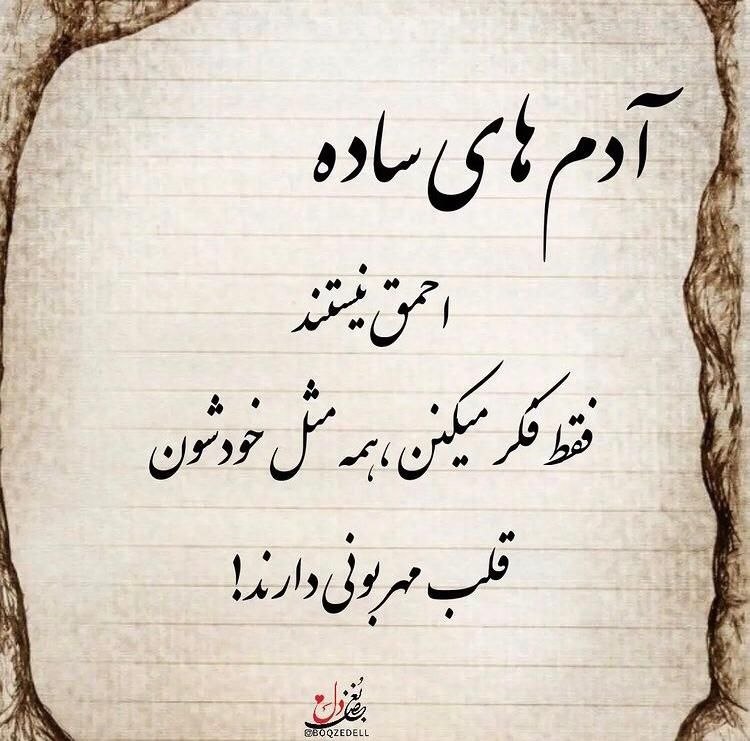 آدم های ساده
احمق نیستند
فقط فکر میکنن ، همه مثل خودشون
قلب مهربونی دارند!
بُغضِ دل
@BOQZEDELL